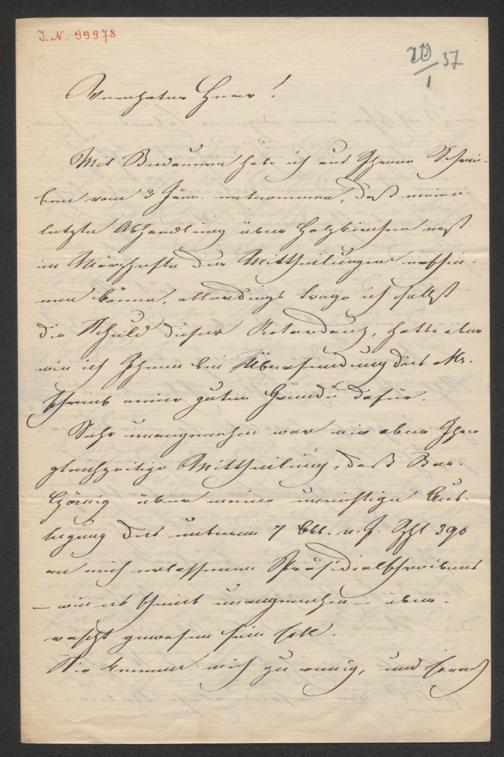 I.N. 99978
37
1
Verehrter Herr!
Mit Bedauern habe ich aus Ihrem Schrei-
ben vom 3 Jän. entnommen, daß meine
letzte Abhandlung über Holzkirchen erst
im Märzhefte der Mittheilungen erschei-
nen könne, allerdings trage ich selbst
die Schuld dieser, hatte aber
wie ich Ihnen bei Übersendung des Ms.
schrieb meine guten Gründe dafür.
Sehr unangenehm war mir aber Ihre
gleichzeitige Mittheilung, daß Bar.
Czörnig über meine unrichtige Aus-
legung des unterm 7 Obb. v. J. Zhl 390
an mich erlassenen Präsidialschreibens
— wie es scheint unangenehm — über-
rascht gewesen sein soll.
Sie kennen mich zu wenig, und